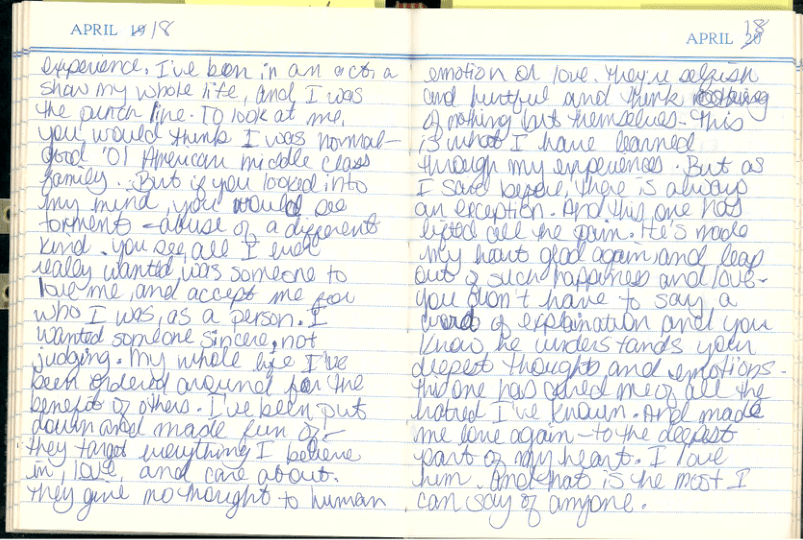 APRIL 19 18
experience. I've been in an act, a
show my whole life, and I was
the punch line. To look at me,
you would think I was normal—
good 'ol American middle class
family. But if you looked into
my mind, you would see
torment – abuse of a different
kind. You see, all I ever
really wanted was someone to
love me, and accept me for
who I was, as a person. I
wanted someone sincere, not
judging. My whole life I've
been ordered around for the
benefit of others. I've been put
down and made fun of –
they target everything I believe
in, love, and care about.
They give no thought to human
APRIL 20 18
emotion or love. They're selfish
and hurtful and think
of nothing but themselves. This
is what I have learned
through my experiences. But as
I said before, there is always
an exception. And this one has
lifted all the pain. He's made
my heart glad again, and leap
out of such happiness and love –
you don't have to say a
word of explaination and you
know he understands your
deepest thoughts and emotions –
this one has cured me of all the
hatred I've known. And made
me love again – to the deepest
part of my heart. I love
him. And that is the most I
can say of anyone.